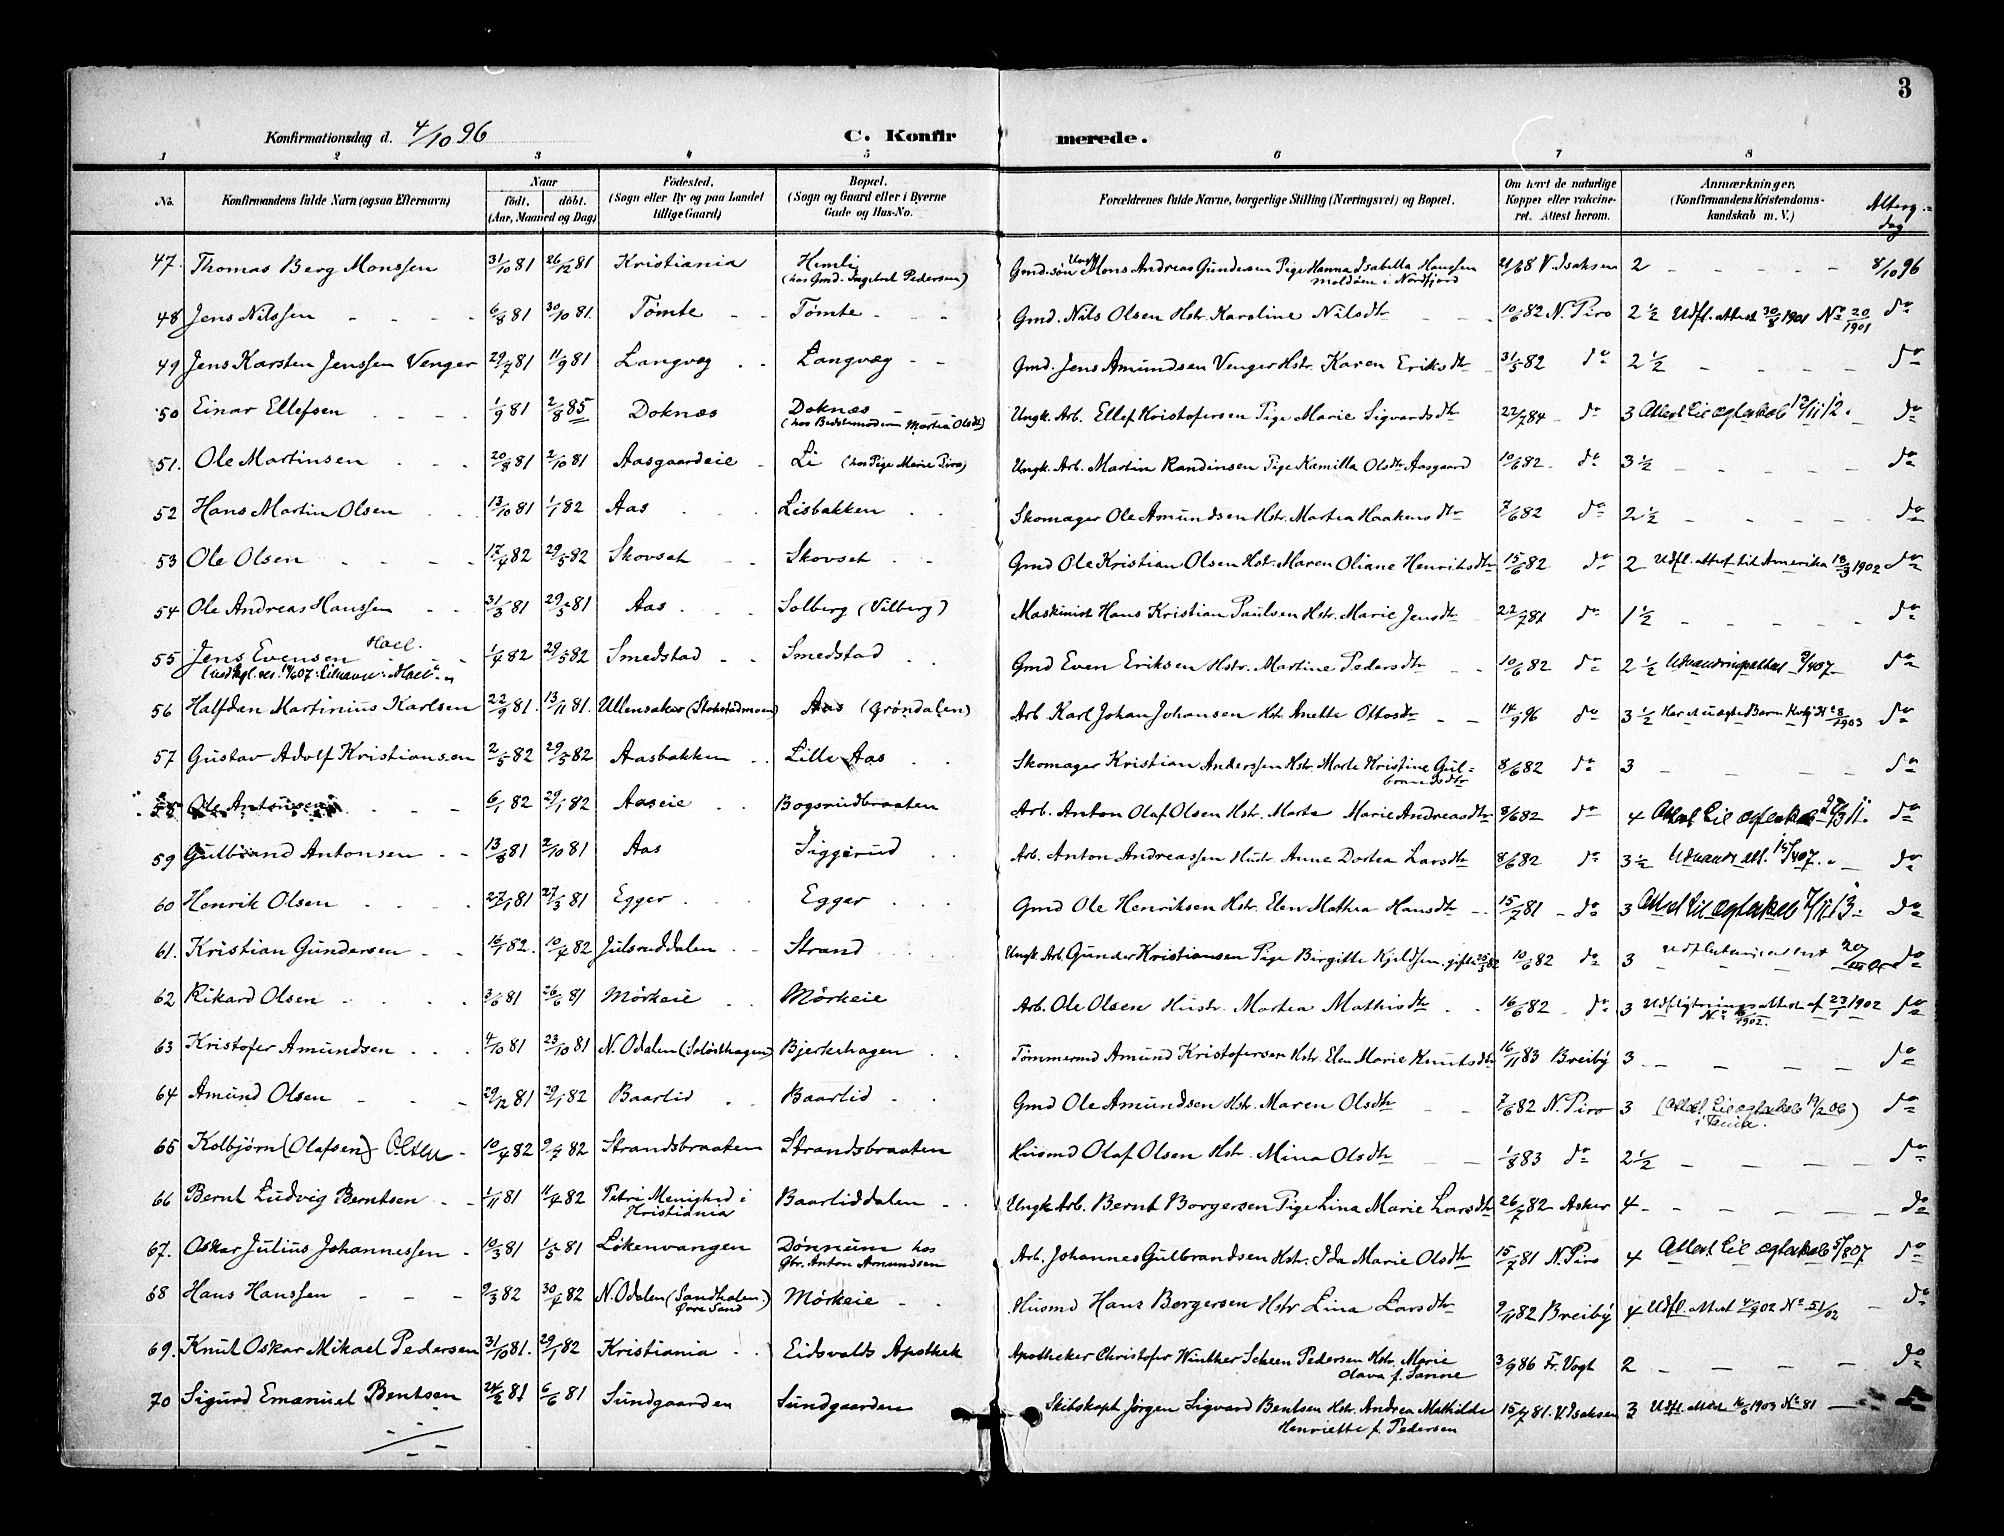 3
Konfirmationsdag d. 4/10 96 C. Konfir merede.
1 2 3 4 5 6 7 8
No. Konfirmandens fulde Navn (ogsaa Efternavn) Naar født. døbt. (Aar, Maaned og Dag) Fødested. (Sogn eller By og paa Landet tillige Gaard) Bopæl. (Sogn og Gaard eller i Byerne Gade og Hus-No. Forældrenes fulde Navne, borgerlige Stilling (Næringsvei) og Bopæl. Om havt de naturlige Kopper eller vakcineret. Attest herom. Anmærkninger. (Konfirmandens Kristendomskundskab m. V.) Altergdag
47. Thomas Berg Monssen 31/10 81 26/12 81 Kristiania Himli (hos Gmd. Ingebret Pedersen) Gmd. søn Ungk. Mons Andreas Gundersen Pige Hanna Isabella Hanssen Moldøen i Nordfjord 21/6 8 V. Isaksen 2 - - - - 8/10 96
48 Jens Nilssen 6/8 81 30/10 81. Tömte Tömte Gmd. Nils Olsen Hstr. Karoline Nilsdtr 10/6 82 N. Piro 2 1/2 Udfl. attest 30/8 1901 No 20/1901 do
49 Jens Karsten Jenssen Venger 29/7 81 11/9 81 Langvæg Langvæg Gmd. Jens Amundsen Venger Hstr. Karen Eriksdtr 31/5 82 do 2 1/2 - - - do
50 Einar Ellefsen 1/9 81 2/8 85 Doknæs Doknæs (hos Bedstemoderen Martea Olsdtr) Ungk. Arb. Ellef Kristofersen Pige Marie Sigvardsdtr 22/7 84 do 3 Attest til ægteskab 12/11 12. do
51. Ole Martinsen 20/8 81 2/10 81 Aasgaardeie Li (hos Pige Marie Piro) Ungk. Arb. Martin Randinsen Pige Kamilla Olsdtr Aasgaard 10/6 82 do 3 1/2 - - - do
52 Hans Martin Olsen 13/10 81 1/1 82 Aas Lisbakken Skomager Ole Amundsen Hstr. Martea Haakensdtr 7/6 82 do 2 1/2 - - - do
53 Ole Olsen 17/4 82 29/5 82 Skovset Skovset Gmd Ole Kristian Olsen Hstr. Maren Oliane Henriksdtr 15/6 82 do 2 Udfl. attest til Amerika 13/3 1902 do
54 Ole Andreas Hanssen 31/3 81 29/5 81 Aas Solberg (Vilberg) Maskinist Hans Kristian Paulsen Hstr. Marie Jensdtr 22/7 81 do 1 1/2 - - - do
55 Jens Evensen Hael. 1/4 82 29/5 82 Smedstad Smedstad Gmd Even Eriksen Hstr. Martine Pedersdtr 10/6 82 do 2 1/2 Udvandringsattest 3/4 07 do
56 Halfdan Martinius Karlsen 22/9 81. 13/11 81. Ullensaker (Stokstadmoen) Aas (Gröndalen) Arb. Karl Johan Johansen Hstr. Anette Ottosdtr 14/9 96 do 3 1/2 Har et uægte Barn No 8/1903 do
57 Gustav Adolf Kristiansen 2/5 82 29/5 82 Aasbakken Lille Aas Skomager Kristian Anderssen Hstr. Marte Kristine Gulbrandsdtr 8/6 82 do 3 - - - do
58 Ole Antonsen 6/1 82 29/1 82 Aaseie Bogsrudbraaten Arb. Anton Olaf Olsen Hstr. Marta Marie Andreasdtr 8/6 82 do 4 Attest til ægteskab do
59 Gulbrand Antonsen 13/8 81 2/10 81 Aas Siggerud Arb. Anton Andreassen Hustr. Anne Dortea Larsdtr 8/6 82 do 3 1/2 Udvandr. att. 15/4 07. do
60 Henrik Olsen 27/1 81 27/3 81 Egger Egger Gmd Ole Henriksen Hstr. Elen Mathea Hansdtr 15/7 81 do 3 Attest til ægteskab 7/11 13. do
61. Kristian Gundersen 16/1 82. 10/4 82 Julsruddalen Strand Ungk Arb. Gunder Kristiansen Pige Birgitte Kjeldsen. gifte 25/3 82 10/6 82 do 3 do
62 Rikard Olsen 3/6 81 26/6 81 Mörkeie Mörkeie Arb. Ole Olsen Hustr. Martea Mathisdtr 16/6 82 do 3 Udflytningsattest af 23/1 1902 do
63 Kristofer Amundsen 4/10 81 23/10 81 N. Odalen Bjerkehagen Tömmermd Amund Kristofersen Hstr. Elen Marie Knutsdtr 16/11 83 Breiby 3 - - - do
64 Amund Olsen 29/12 81 29/1 82 Baarlid Baarlid Gmd Ole Amundsen Hstr. Maren Olsdtr 7/6 82 N. Piro 3 (Attest til ægteskab 19/2 06) do
65 Kolbjörn (Olafsen) Olsen 10/4 82 9/7 82 Strandsbraaten Strandsbraaten Husmd Olaf Olsen Hstr. Mina Olsdtr 1/8 83 do 2 1/2 - - - do
66 Bernt Ludvig Berntsen 1/11 81 11/4 82 Petri Menighed i Kristiania Baarliddalen Ungk Arb. Bernt Borgersen Pige Lina Marie Larsdtr 26/7 82 Asker 4 - - - do
67. Oskar Julius Johannessen 10/3 81 1/5 81 Lökenvangen Dönnum hos Gbr. Anton Amundsen Arb. Johannes Gulbrandsen Hstr. Ida Marie Olsdtr 15/7 81 N. Piro 4 Attest til ægteskab 5/8 07 do
68 Hans Hanssen 9/3 82 30/4 82 N. Odalen (Sandhalen. Øvre Sand) Mörkeie Husmd Hans Borgersen Hstr. Lina Larsdtr 9/11 82 Breiby 4 Udfl. attest 4/9 02 No 51/02 do
69. Knut Oskar Mikael Pedersen 31/10 81. 29/1 82 Kristiania Eidsvolds Apothek Apotheker Christofer Winther Scheen Pedersen Hstr. Marie Olava f. Sanne 3/9 86 Fr. Vogh 2 - - - do
70 Sigurd Emanuel Bentsen 24/2 81 6/6 81 Sundgaarden Sundgaarden Skibskapt Jørgen Sigvard Bentsen Hstr. Andrea Mathilde Henriette f. Pedersen 15/7 81. V. Isaksen 3 Udfl. attest 16/6 1903 No 81